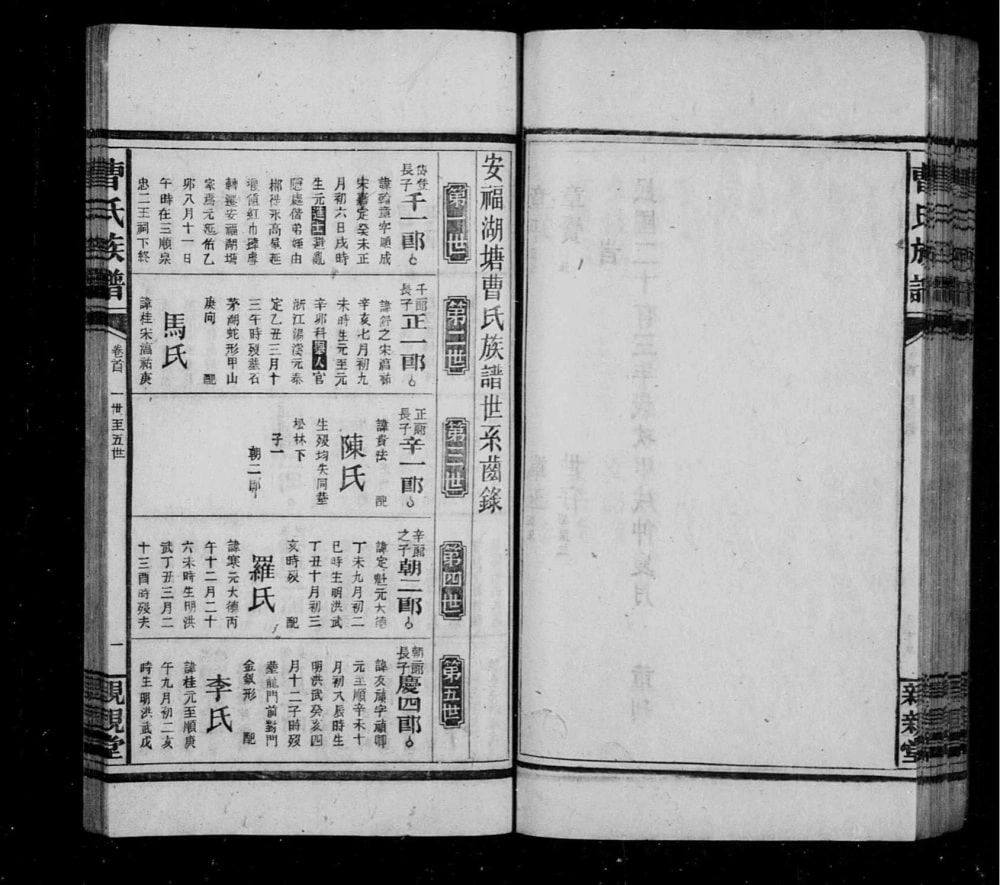 曹氏族譜
親親堂
安福湖塘曹氏族譜世系齒錄
第一世
岱登
長子
千一郎
諱翰章字順成
宋嘉定癸未正
月初六日戌時
生元進士避亂
隱處偕弟姪由
轉遷安福湖塘
家焉元延佑乙
卯八月十一日
午時在三順泉
忠二王祠下終
第二世
千郎
長子
正一郎
諱舒之宋滈祐
辛亥七月初九
未時生元至元
辛卯科舉人官
浙江錫深元泰
定乙丑三月十
三午時歿葬石
茅湖蛇形甲山
庚向 配
馬氏
諱桂宋滈祐庚
第三世
正郎
長子
辛一郎
諱貴法 配
陳氏
生歿均失同葬
松林下
子一
朝二郎
第四世
辛郎
之子
朝二郎
諱定魁元大德
丁未九月初二
巳時生明洪武
丁丑十月初三
亥時歿 配
羅氏
諱寒元大德丙
午十二月二十
六未時生明洪
武丁丑三月二
十三酉時歿夫
第五世
朝郎
長子
慶四郎
諱友諒字頑卿
元至順辛未十
月初八辰時生
明洪武癸亥四
月十二子時歿
葬龍門前對門
金釵形 配
李氏
諱桂元至順庚
午九月初二亥
時生明洪武戊
曹氏族譜
卷首
一世至五世
一
親親堂